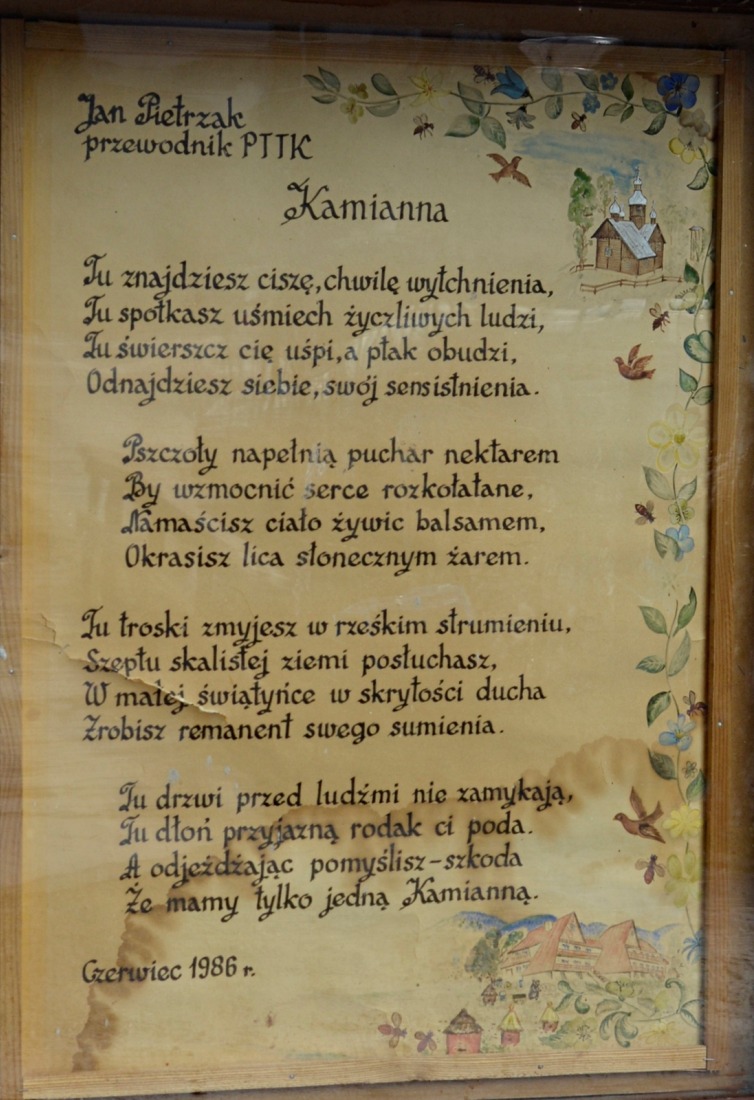 Jan Pietrzak
przewodnik PTTK
Kamianna
Tu znajdziesz ciszę, chwilę wytchnienia,
Tu spotkasz uśmiech życzliwych ludzi,
Tu świerszcz cię uśpi, a ptak obudzi,
Odnajdziesz siebie, swój sens istnienia.
Pszczoły napełnią puchar nektarem
By wzmocnić serce rozkołatane,
Namaścisz ciało żywic balsamem,
Okrasisz lica słonecznym żarem.
Tu troski zmyjesz w rześkim strumieniu,
Szeptu skalistej ziemi posłuchasz,
W małej świątyńce w skrytości ducha
Zrobisz remanent swego sumienia.
Tu drzwi przed ludźmi nie zamykają,
Tu dłoń przyjazną rodak ci poda.
A odjeżdżając pomyślisz - szkoda
Że mamy tylko jedną Kamianną.
Czerwiec 1986 r.